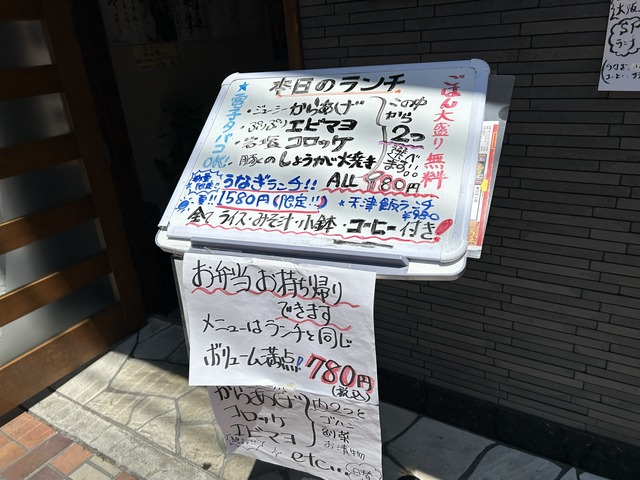 本日のランチ
ごはん大盛り無料
★電子タバコOK!
・ジューシーからあげ
・ぷりぷりエビマヨ
・岩塩コロッケ
・豚のしょうが焼き
この中から2つ選べます!!
ALL 980円
うなぎランチ!!
1580円(限定!!)
★天津飯ランチ
¥980
全てライス・みそ汁・小鉢・コーヒー付き!
お弁当お持ち帰り
できます
メニューはランチと同じ
ボリューム満点!780円
(税込)
からあげ
コロッケ
エビマヨ
内2つと
ゴハン
副菜
お漬物
etc...
大阪